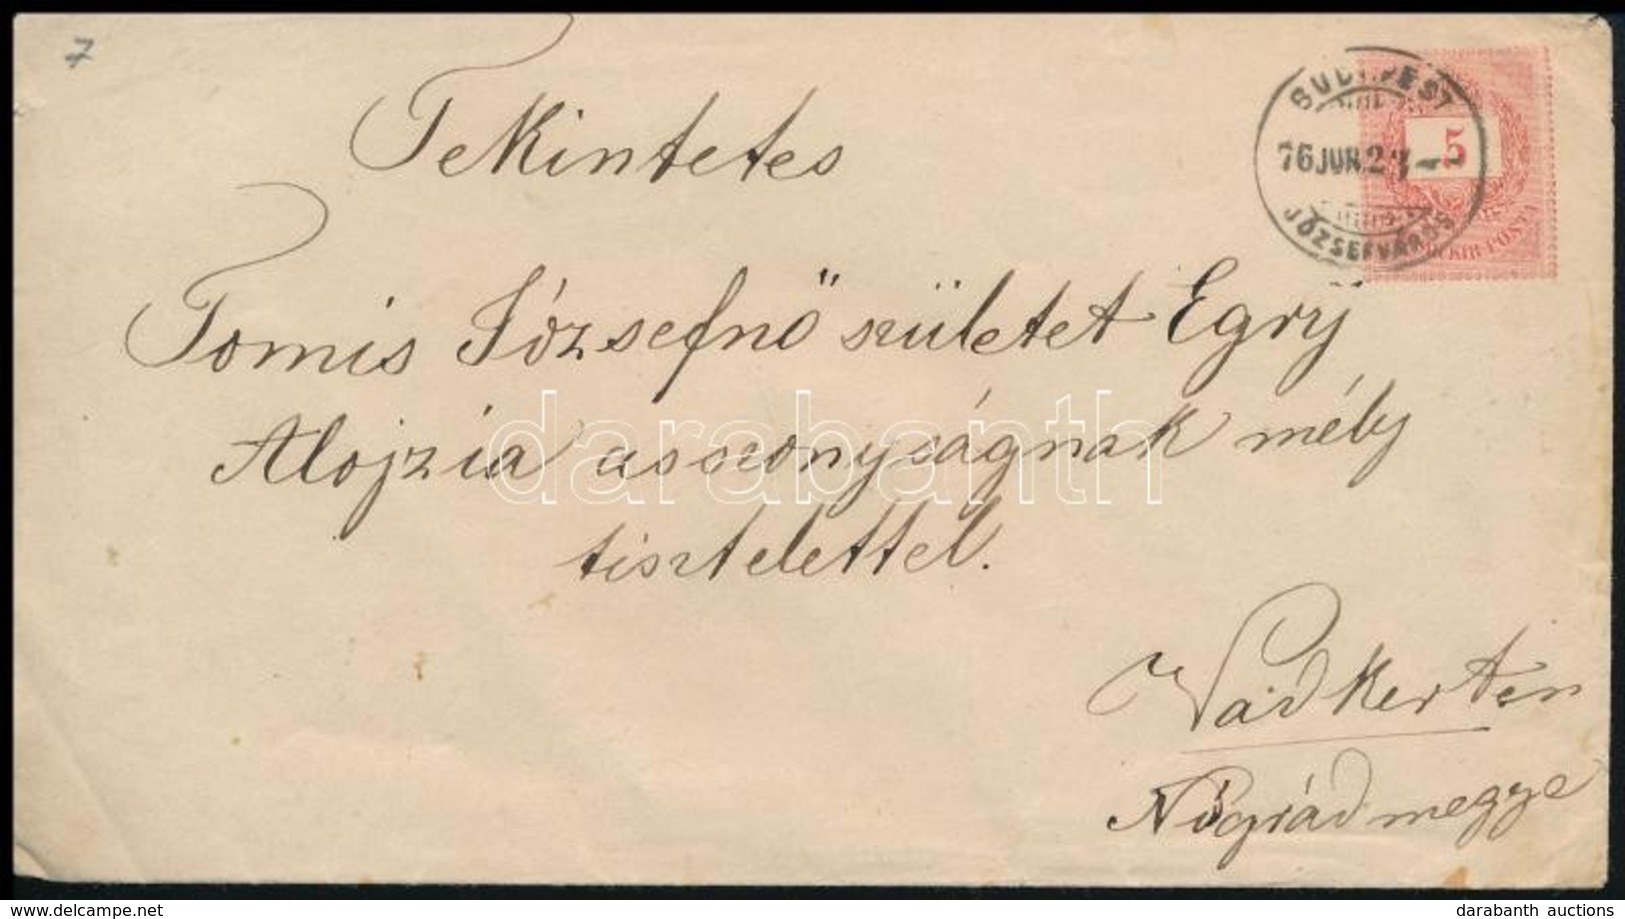 7
Tekintetes
Tomis Józsefnő született Egry
Alojzia asszonyságnak mély
tisztelettel.
Vadkerten
Nógrád megye
BUDAPEST
76 JUN 2
JÓZSEFVÁROS
5
KIR. POSTA
darabanth
www.delcampe.net
darabanth auctions